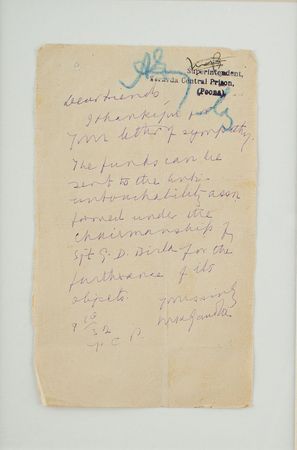 Superintendent,
Yeravda Central Prison,
(Poona)
Dear friends,
I thank you for
your letter of sympathy.
The funds can be
sent to the anti-
untouchability assn
formed under the
chairmanship of
Sjt G. D. Birla for the
furtherance of its
objects.
Yours sincly
MKGandhi
Y. C. P.